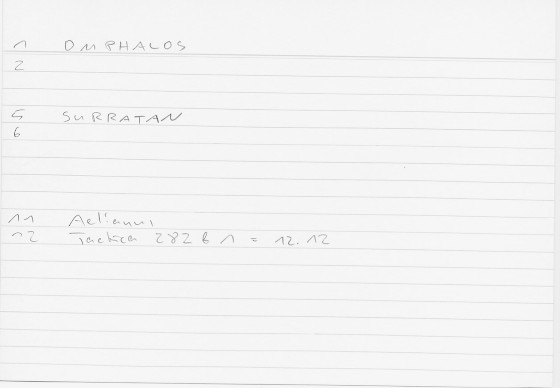 1 OMPHALOS
2
5 SURRATAN
6
11 Aelianus
12 Tactica 282 b 1 = 12.12